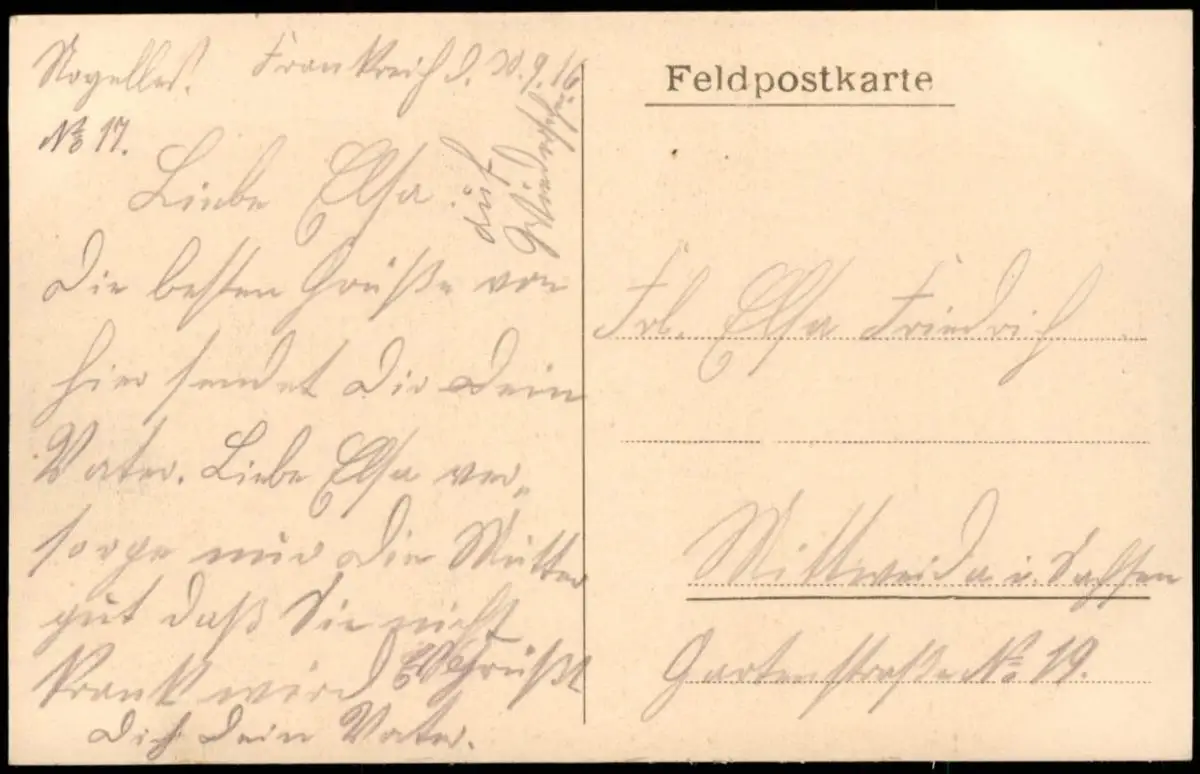 Nogelles. Frankreich d. 20.9.16
No 17.
Liebe Elsa!
Die besten Grüße von
hier sendet Dir Dein
Vater. Liebe Elsa ver-
sorge nur die Mutter
gut daß Sie nicht
krank wird Es Grüßt
Dich Dein Vater.
auf
Wiedersehn
Feldpostkarte
Frl. Elsa Friedrich
Mittweida i. Sachsen
Gartenstraße No 19.